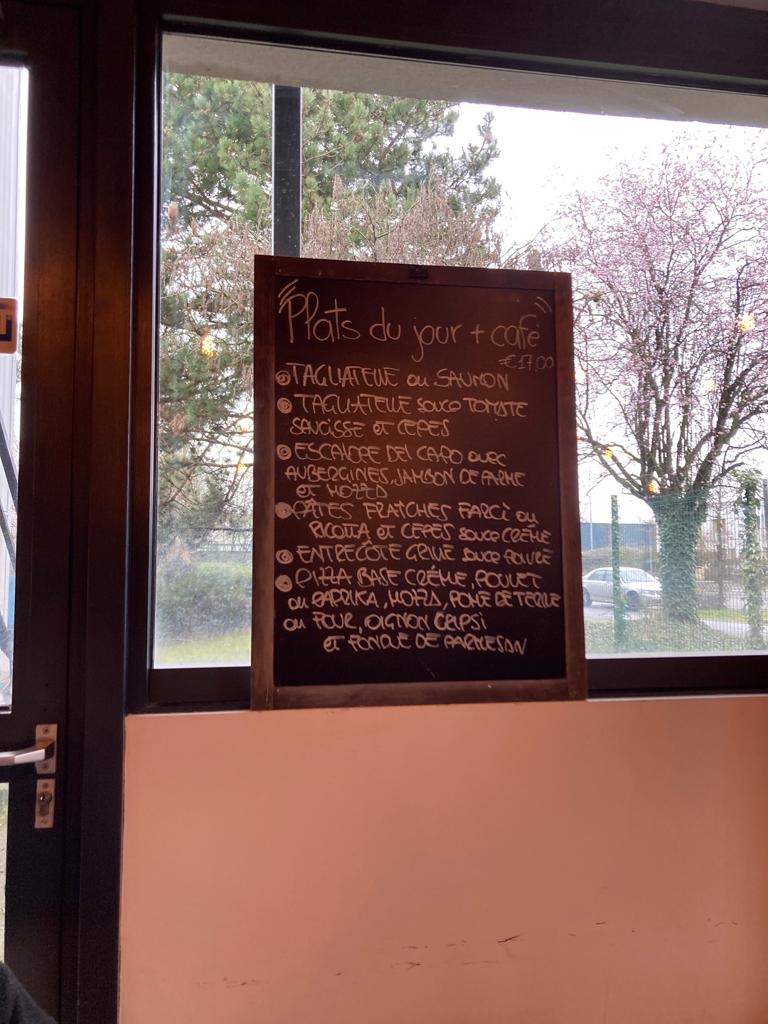 Plats du jour + café
€17,00
TAGLIATELLE au SAUMON
TAGLIATELLE sauce TOMATE
SAUCISSE et CEPES
ESCALOPE DEL CAPO avec
AUBERGINES, JAMBON DE PARME
et MOZZA
PÂTES FRAICHES FARCI au
RICOTTA et CEPES sauce CRÈME
ENTRECÔTE GRILLE sauce POIVRE
PIZZA BASE CRÉME, POULET
au PAPRIKA, MOZZA, POME DE TERRE
au FOUR, OIGNON CRIPSI
et FONDUE DE PARMESAN